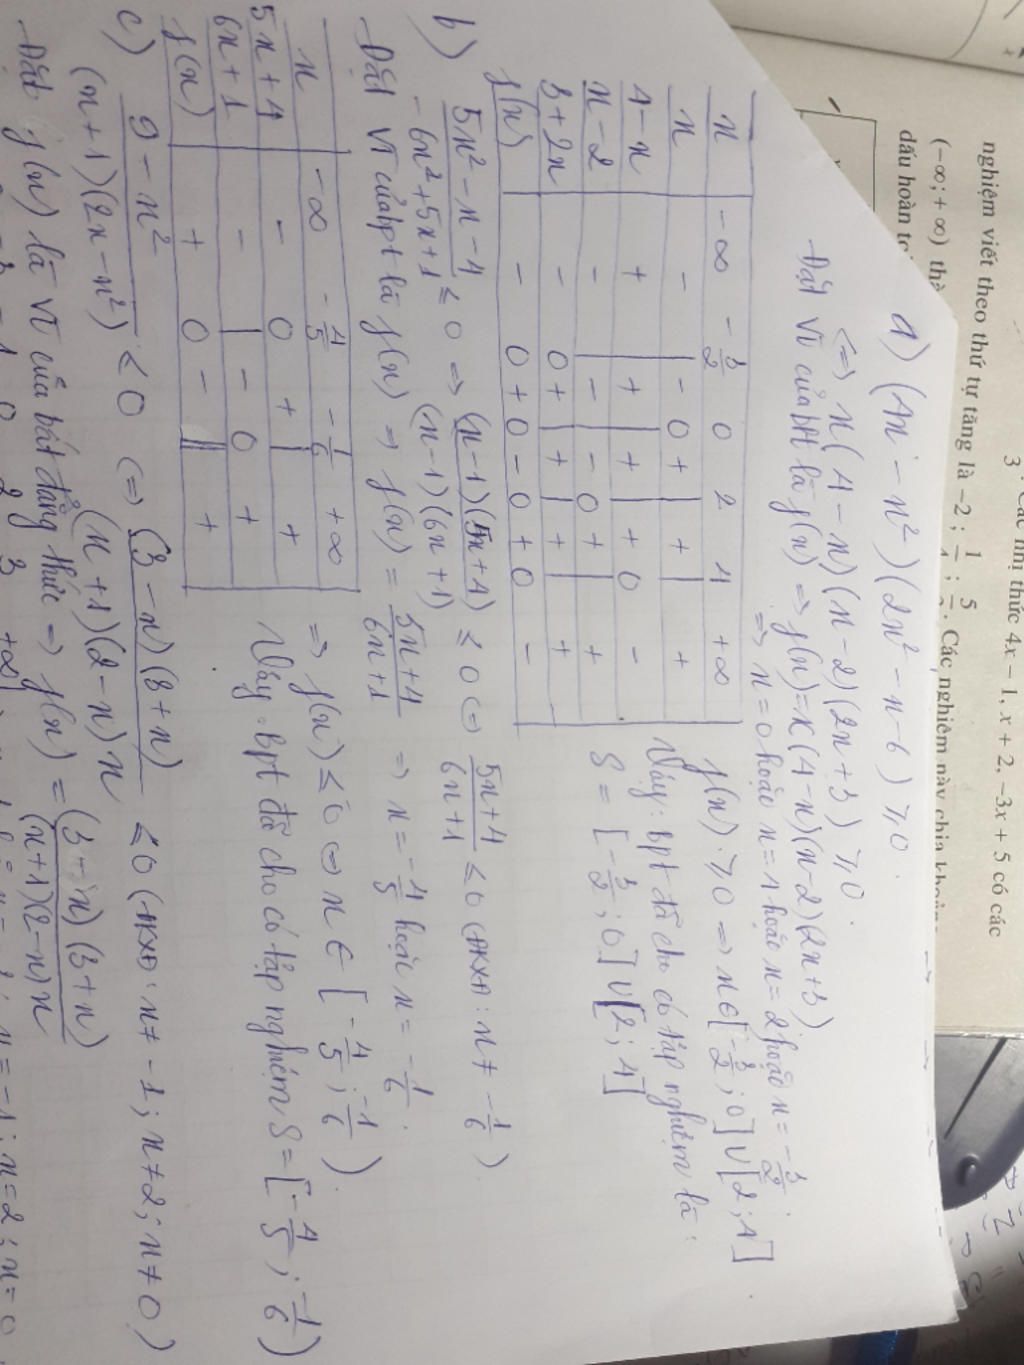 3
nhị thức 4x − 1, x + 2, −3x + 5 có các
nghiệm viết theo thứ tự tăng là −2; 1/ ; 5/ . Các nghiệm này chia khoảng
(−∞; + ∞) thà
dấu hoàn to
a) (4x − x²)(2x² − x − 6) ≥ 0.
<=> x(4 − x)(x − 2)(2x + 3) ≥ 0.
Đặt VT của bpt là f(x) => f(x) = x(4 − x)(x − 2)(2x + 3)
=> x = 0 hoặc x = 4 hoặc x = 2 hoặc x = −3/2.
x | −∞ −3/2 0 2 4 +∞
x | − | − 0 + | + | +
4 − x | + | + | + | + 0 −
x − 2 | − | − | − 0 + | +
3 + 2x | − 0 + | + | + | +
f(x) | − 0 + 0 − 0 + 0 −
f(x) ≥ 0 => x ∈ [−3/2; 0] ∪ [2; 4]
Vậy: bpt đã cho có tập nghiệm là:
S = [−3/2; 0] ∪ [2; 4]
b) (5x² − x − 4)/(−6x² + 5x + 1) ≤ 0 => (x − 1)(5x + 4)/(x − 1)(6x + 1) ≤ 0 <=> (5x + 4)/(6x + 1) ≤ 0 (ĐKXĐ: x ≠ −1/6).
Đặt VT của bpt là f(x) => f(x) = (5x + 4)/(6x + 1) => x = −4/5 hoặc x = −1/6.
x | −∞ −4/5 −1/6 +∞
5x + 4 | − 0 + | +
6x + 1 | − | − 0 +
f(x) | + 0 − || +
=> f(x) ≤ 0 <=> x ∈ [−4/5; −1/6).
Vậy bpt đã cho có tập nghiệm S = [−4/5; −1/6)
c) (9 − x²)/(x + 1)(2x − x²) ≤ 0 <=> (3 − x)(3 + x)/(x + 1)(2 − x)x ≤ 0 (ĐKXĐ: x ≠ −1; x ≠ 2; x ≠ 0)
Đặt f(x) là VT của bất đẳng thức => f(x) = (3 − x)(3 + x)/(x + 1)(2 − x)x
−1 0 2 3 +∞ x = −1; x = 2; x = 0